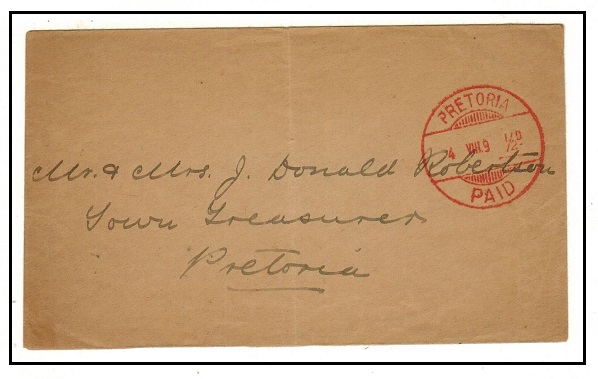 PRETORIA
4 VIII 9 ½D
PAID
Mr. & Mrs. J. Donald Robertson
Town Treasurer
Pretoria